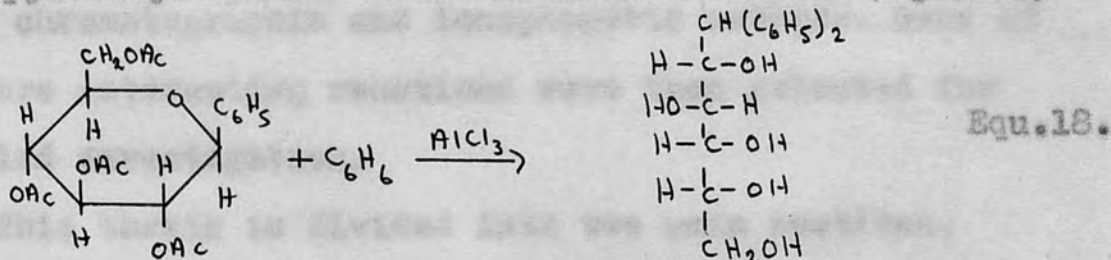 CH₂OAc
O
C₆H₅
H
H
OAc H
OAc
H
H
OAc
+ C₆H₆
AlCl₃
CH(C₆H₅)₂
H-C-OH
HO-C-H
H-C-OH
H-C-OH
CH₂OH
Equ.18.